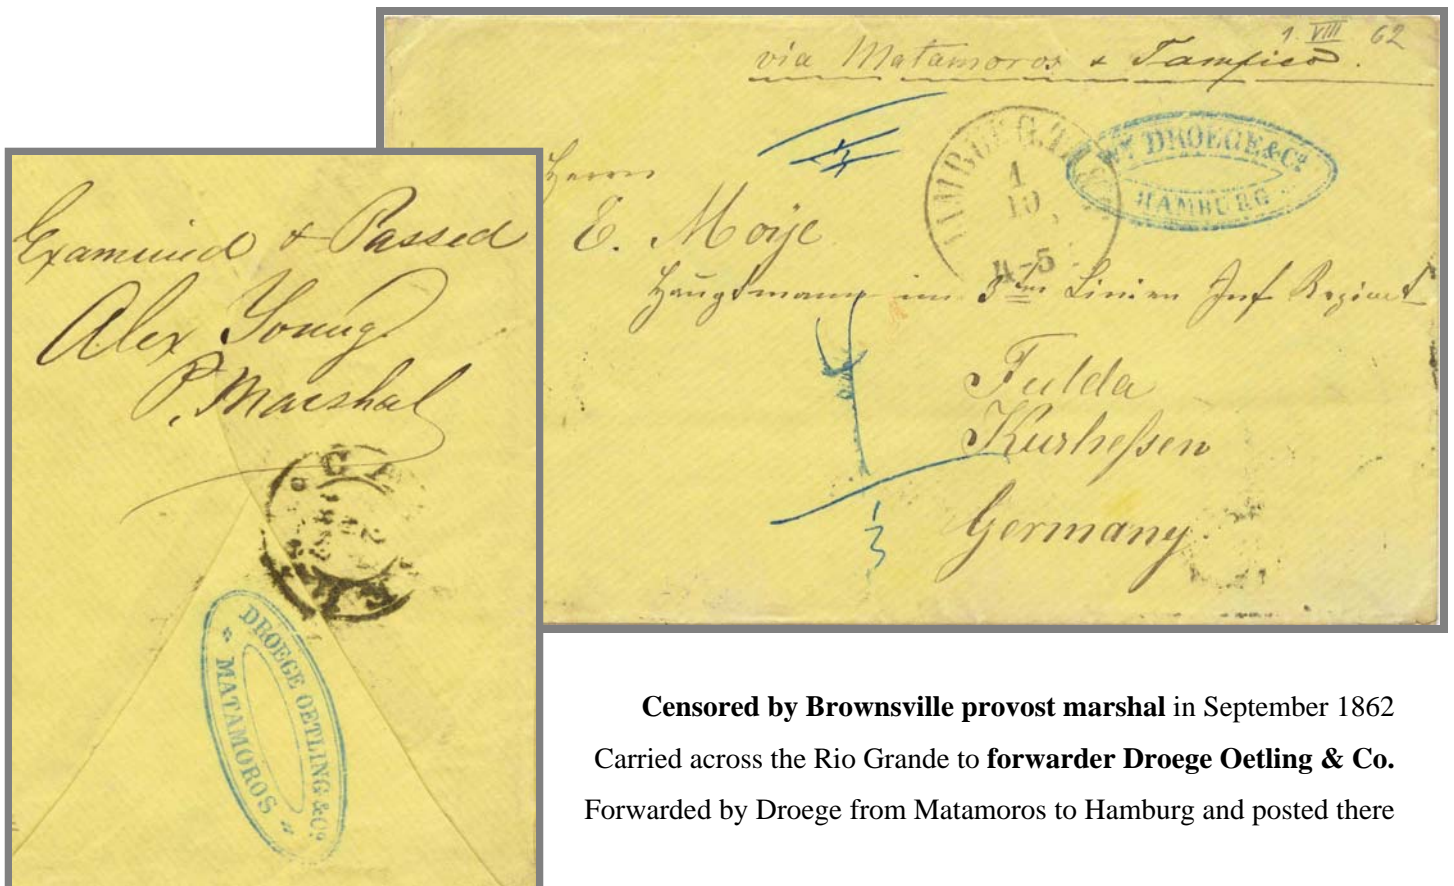 1. VIII 62
via Matamoros & Tampico.
Herrn
E. Moije
Hauptmann im 3ten Linien Inf Regiment
Fulda
Kurhessen
Germany.
WM DROEGE & Co
HAMBURG
HAMBURG. TH.
1
10
4-5
1/3
Examined & Passed
Alex Young
P. Marshal
DROEGE OETLING & Co
MATAMOROS
Censored by Brownsville provost marshal in September 1862
Carried across the Rio Grande to forwarder Droege Oetling & Co.
Forwarded by Droege from Matamoros to Hamburg and posted there